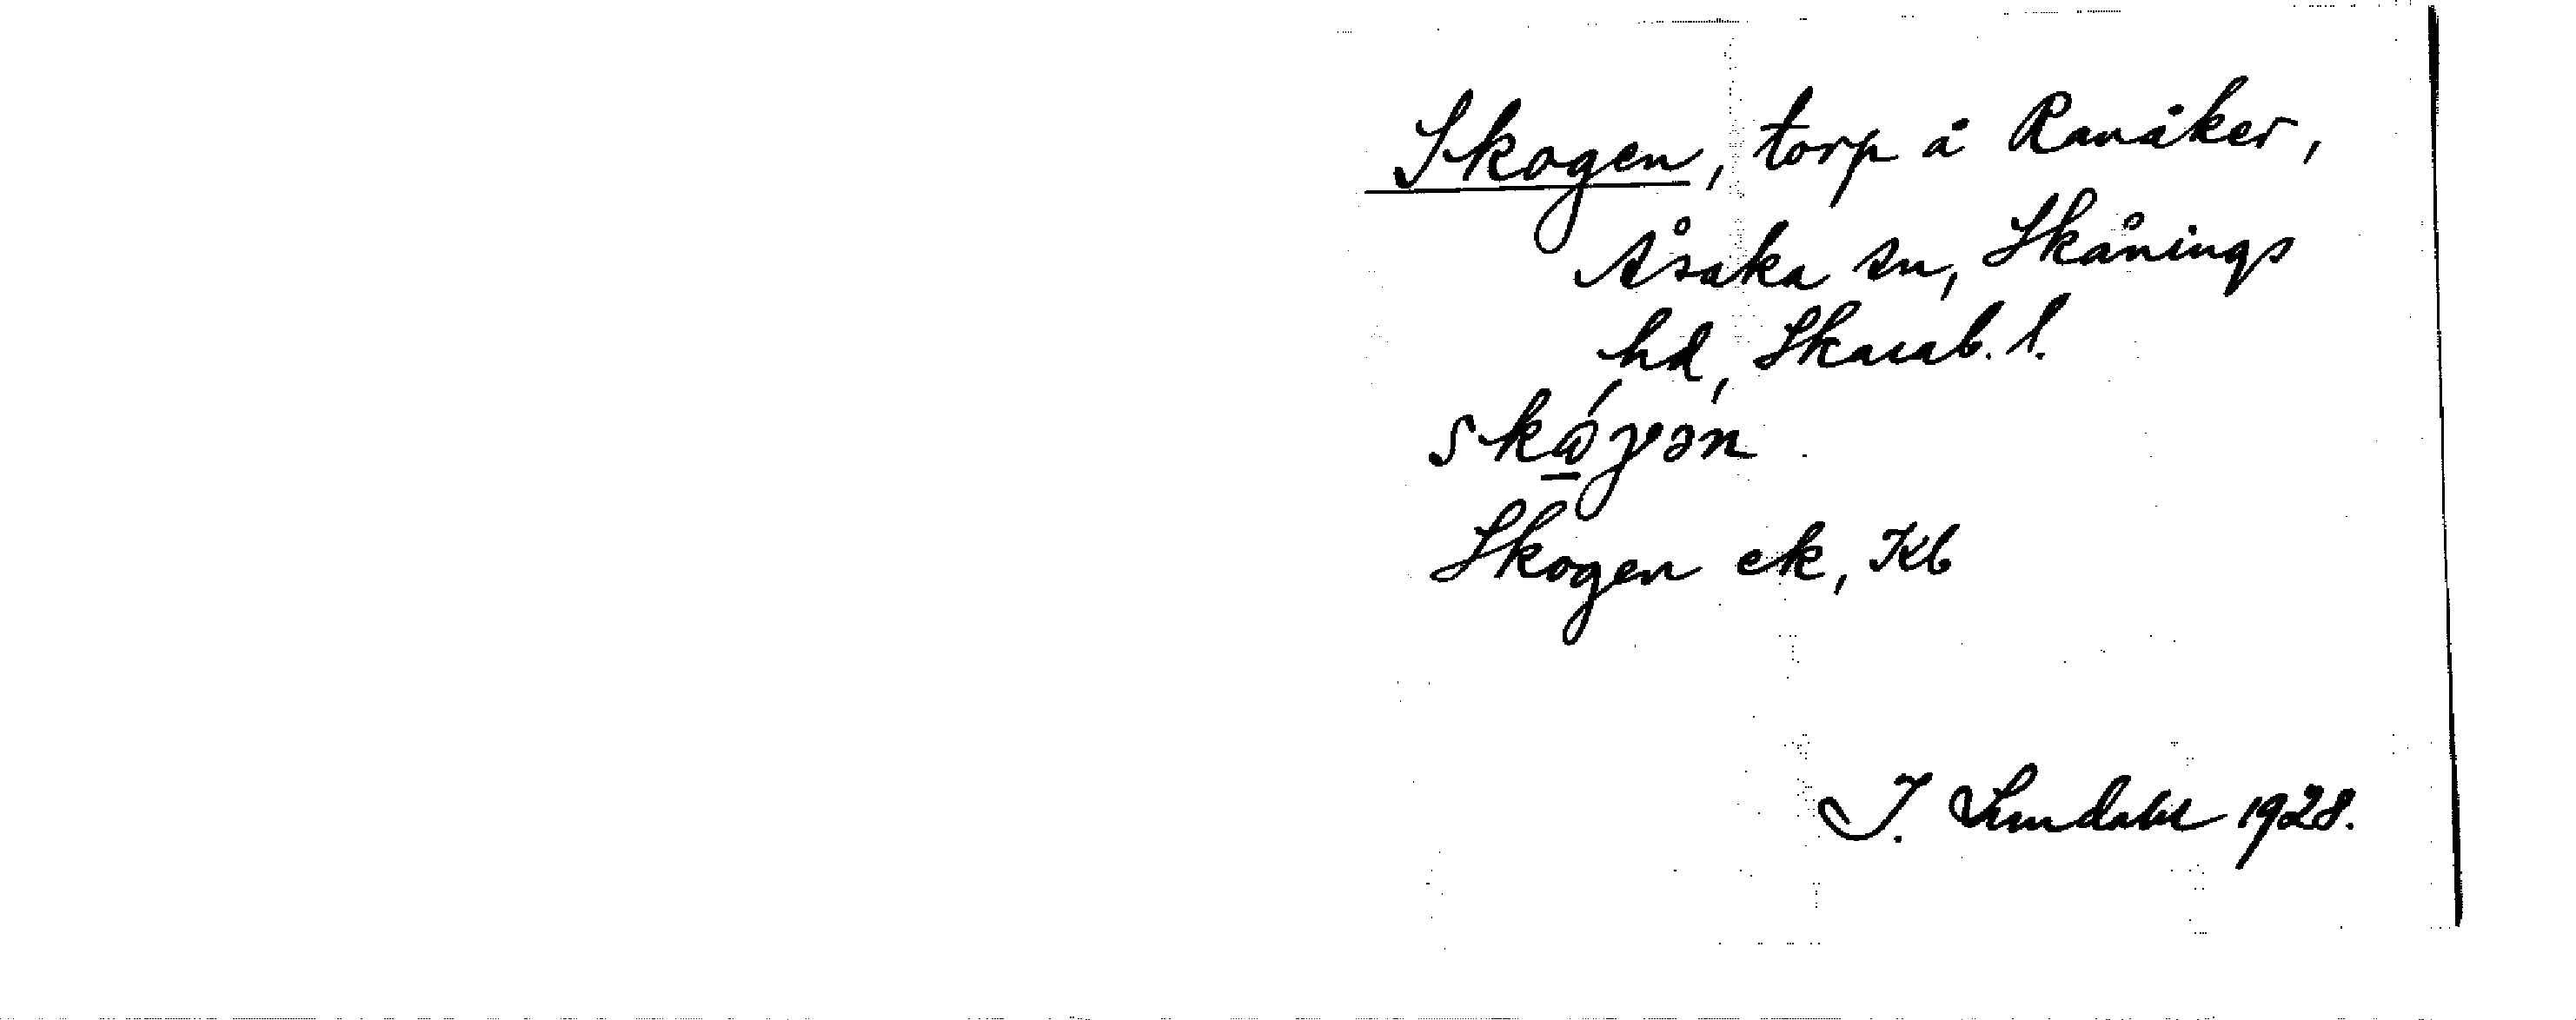 Skogen, torp å Ranåker,
Åsaka sn, Skånings
hd, Skarab. l.
skɷ̠́γən
Skogen ek, Kb
J. Lindahl 1928.